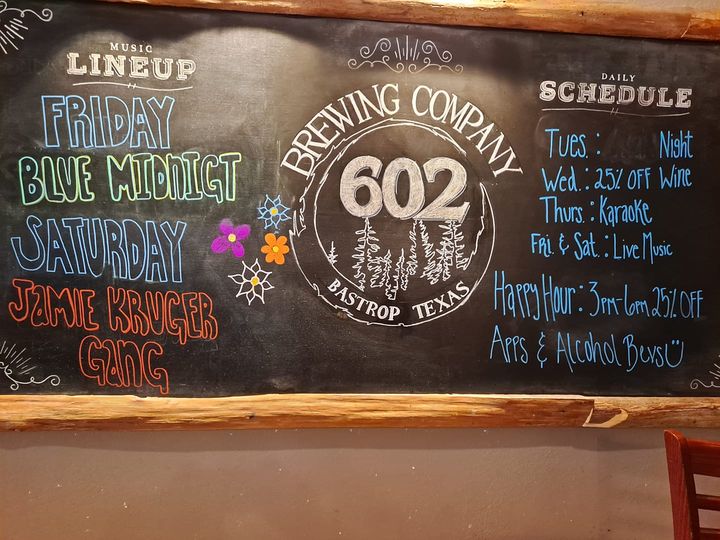 MUSIC
LINEUP
FRIDAY
BLUE MIDNIGT
SATURDAY
JAMIE KRUGER
GANG
BREWING COMPANY
602
BASTROP TEXAS
DAILY
SCHEDULE
Tues. : Night
Wed. : 25% OFF Wine
Thurs. : Karaoke
Fri. & Sat. : Live Music
Happy Hour : 3pm-6pm 25% OFF
Apps & Alcohol Bevs